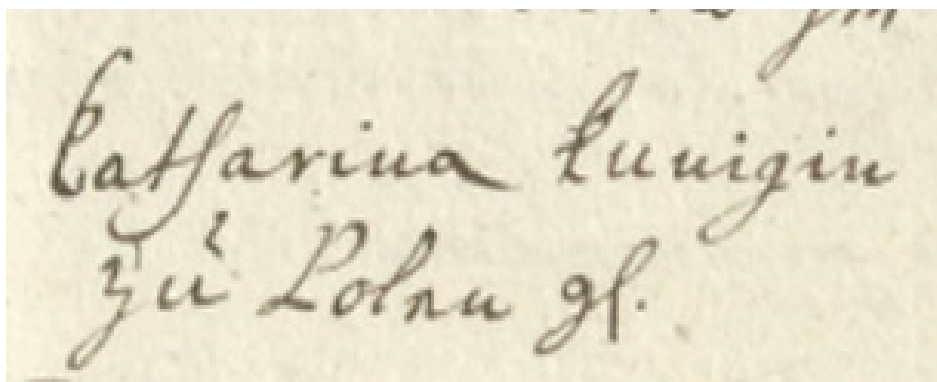 Catharina kunigin
zu Polen gl.